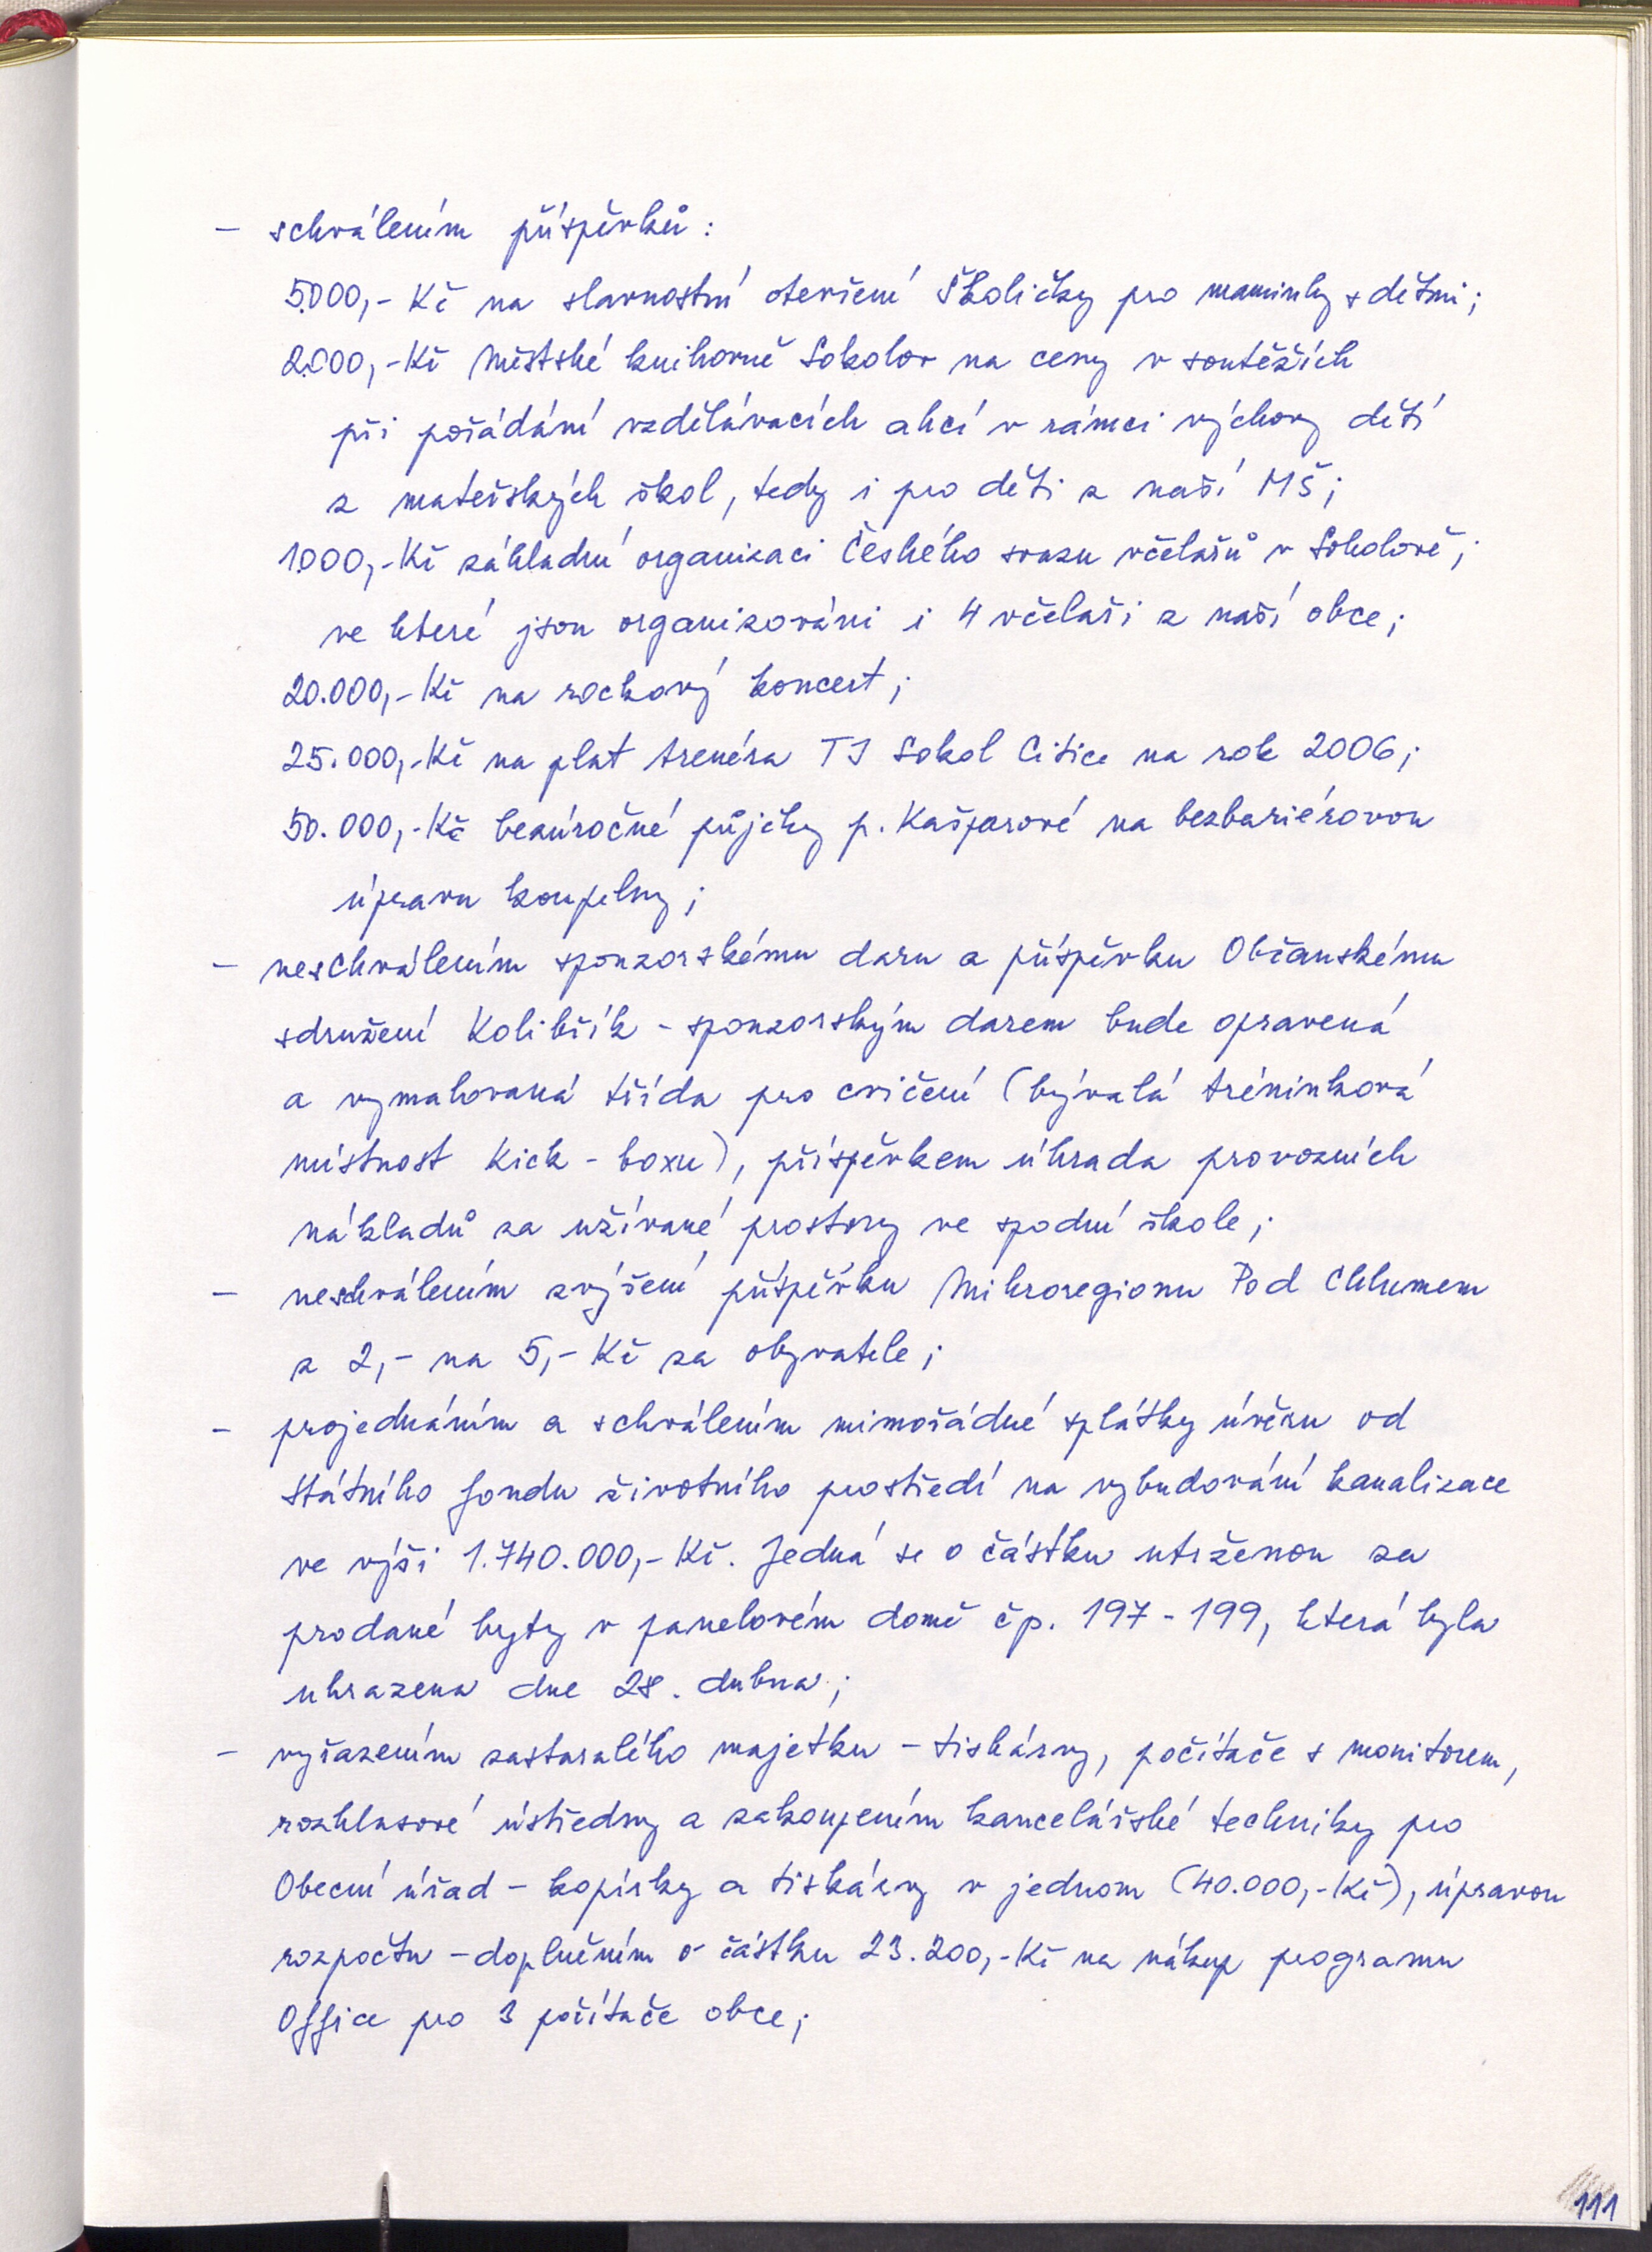 - schválením příspěvků:
5.000,- Kč na slavnostní otevření Školičky pro maminky s dětmi;
2.000,- Kč Městské knihovně Sokolov na ceny v soutěžích
při pořádání vzdělávacích akcí v rámci výchovy dětí
z mateřských škol, tedy i pro děti z naší MŠ;
1.000,- Kč základní organizaci Českého svazu včelařů v Sokolově;
ve které jsou organizováni i 4 včelaři z naší obce;
20.000,- Kč na rockový koncert;
25.000,- Kč na plat trenéra TJ Sokol Citice na rok 2006;
50.000,- Kč bezúročné půjčky p. Kašparové na bezbariérovou
úpravu koupelny;
- neschválením sponzorskému daru a příspěvku Občanskému
sdružení Kolibřík - sponzorským darem bude opravená
a vymalovaná třída pro cvičení (bývalá tréninková
místnost Kick - boxu), příspěvkem úhrada provozních
nákladů za užívané prostory ve spodní škole;
- neschválením zvýšení příspěvku Mikroregionu Pod Chlumem
z 2,- na 5,- Kč za obyvatele;
- projednáním a schválením mimořádné splátky úvěru od
Státního fondu životního prostředí na vybudování kanalizace
ve výši 1.740.000,- Kč. Jedná se o částku utrženou za
prodané byty v panelovém domě čp. 197 - 199, která byla
uhrazena dne 28. dubna;
- vyřazením zastaralého majetku - tiskárny, počítače s monitorem,
rozhlasové ústředny a zakoupením kancelářské techniky pro
Obecní úřad - kopírky a tiskárny v jednom (40.000,- Kč), úpravou
rozpočtu - doplněním o částku 23.200,- Kč na nákup programu
Office pro 3 počítače obce;
111